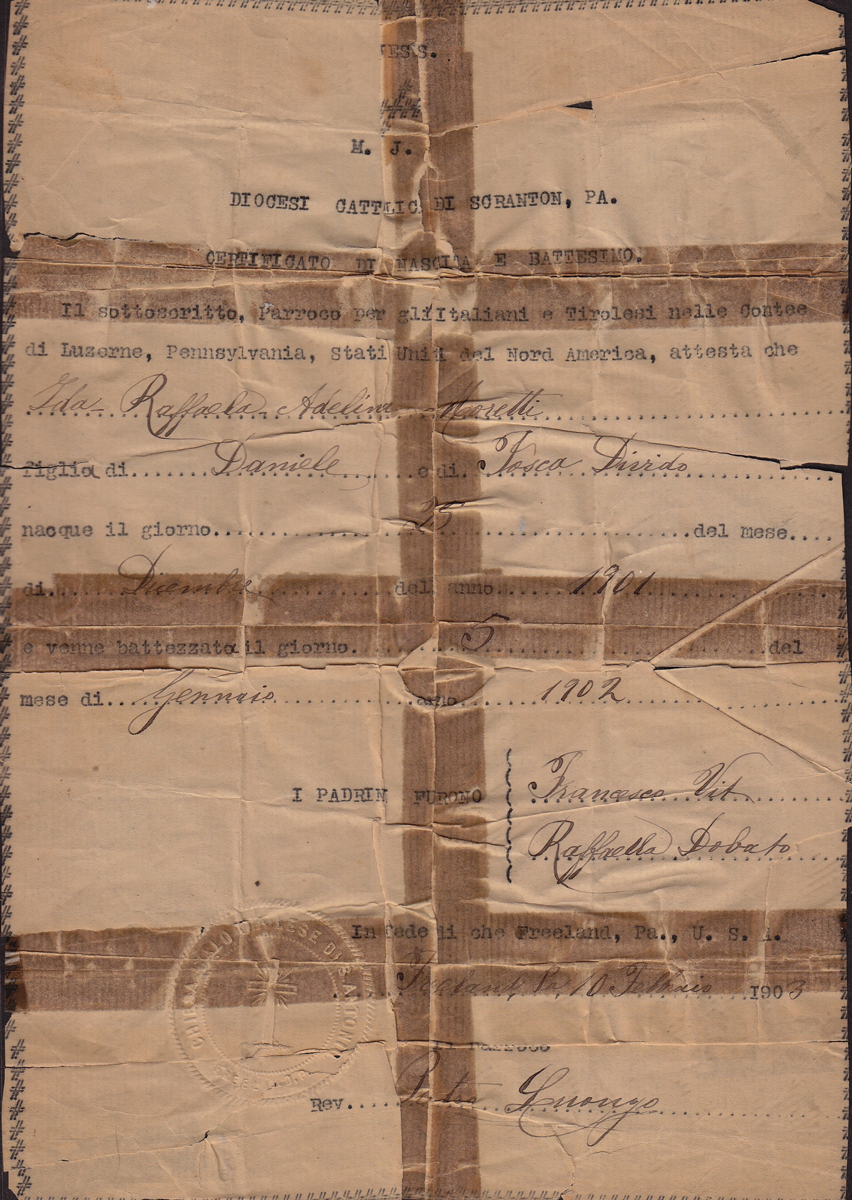 M. J.
DIOCESI CATTLIC DI SCRANTON, PA.
CERTIFICATO DI NASCITA E BATTESIMO.
Il sottoscritto, Parroco per gli Italiani e Tirolesi nelle Contee
di Luzerne, Pennsylvania, Stati Uniti del Nord America, attesta che
Ida Raffaela Adelina Moretti
figlia di Daniele e di Tosca Divido
nacque il giorno 25 del mese
di Dicembre dell anno 1901
e venne battezzata il giorno 5 del
mese di Gennaio anno 1902
I PADRIN FURONO
Francesco Vit
Raffaella Dobato
In fede di che Freeland, Pa., U. S. A.
Freeland, Pa, 10 Febraio 1903
Parroco
Rev. Pietro Luongo